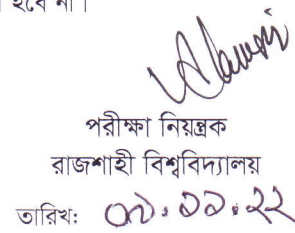 হবে না।
পরীক্ষা নিয়ন্ত্রক
রাজশাহী বিশ্ববিদ্যালয়
তারিখঃ ০৭.১১.২২